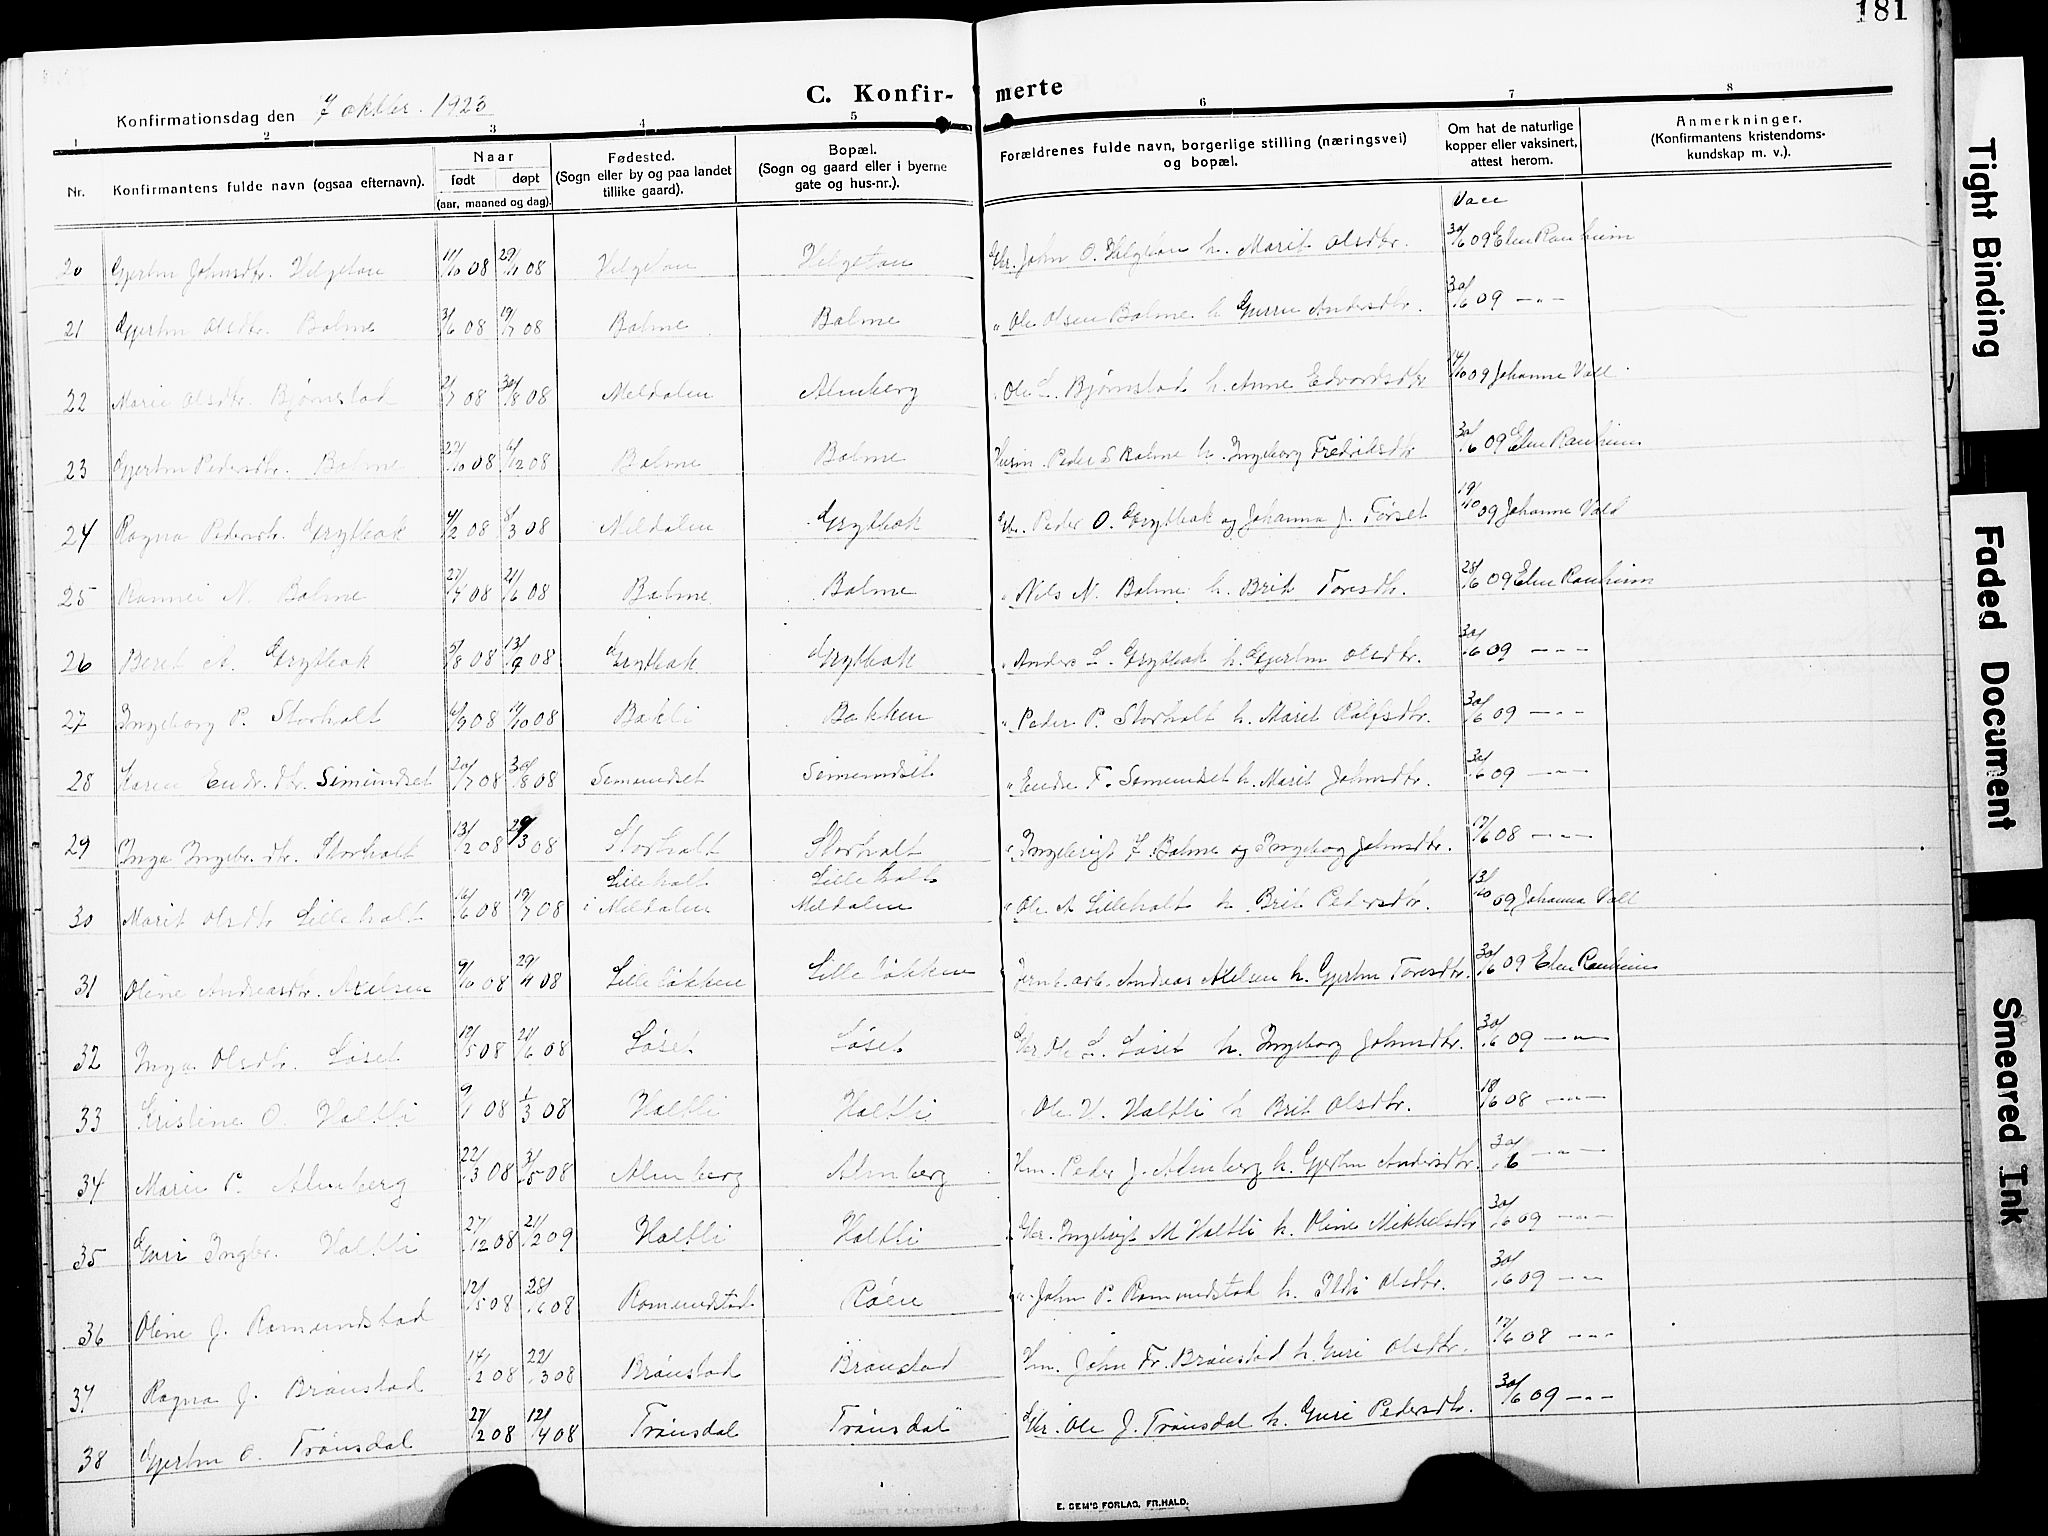 181
C. Konfir- merte
Konfirmationsdag den 7 oktbr. 1923
1 2 3 4 5 6 7 8
Nr. Konfirmantens fulde navn (ogsaa efternavn). Naar født døpt (aar, maaned og dag). Fødested. (Sogn eller by og paa landet tillike gaard). Bopæl. (Sogn og gaard eller i byerne gate og hus-nr.). Forældrenes fulde navn, borgerlige stilling (næringsvei) og bopæl. Om hat de naturlige kopper eller vaksinert, attest herom. Anmerkninger. (Konfirmantens kristendoms-kundskap m. v.).
Vacc
20 Gjertru Johnsdtr. Helgetun 11/10 08 29/11 08 Helgetun Helgetun Gbr. John O. Helgetun h. Marit Olsdtr. 30/6 09 Elen Ranheim
21 Gjertru Olsdtr. Bolme 3/6 08 19/7 08 Bolme Bolme " Ole Olsen Bolme h. Gurru Andersdtr. 30/6 09 —"—
22 Marie Olsdtr. Bjørnstad 2/7 08 30/8 08 Meldalen Almberg " Ole L. Bjørnstad h. Anne Edvardsdtr 14/10 09 Johanna Vall
23 Gjertru Pedersdtr. Bolme 27/10 08 6/12 08 Bolme Bolme Husm. Peder S Bolme h. Ingeborg Fredriksdtr 30/6 09 Elen Ranheim
24 Ragna Pedersdtr. Grytbak 4/2 08 8/3 08 Meldalen Grytbak Gbr. Peder O. Grytbak og Johanna J. Førset 19/10 09 Johanne Vald
25 Rannei N. Bolme 27/4 08 21/6 08 Bolme Bolme " Nils N. Bolme h. Brit Toresdtr. 28/6 09 Elen Ranheim
26 Beret A. Grytbak 5/8 08 13/9 08 Grytbak Grytbak " Anders L. Grytbak h. Gjertru Olsdtr. 30/6 09 —"—
27 Ingeborg P. Storholt 6/9 08 11/10 08 Bakli Bakken " Peder P. Storholt h. Marit Rolfsdtr. 30/6 09 —"—
28 Karen Endr.dtr. Simundset 20/7 08 30/8 08 Semundset Semundset " Endre F. Semundset h. Marit Johnsdtr. 30/6 09 —"—
29 Inga Ingebr. dtr. Storholt 13/2 08 29/3 08 Storholt Storholt " Ingebrigt J. Bolme og Ingeborg Johnsdtr. 17/6 08 —"—
Lilleholt Lilleholt
30 Marit Olsdtr Lilleholt 16/6 08 19/7 08 i Meldalen Meldalen " Ole A Lilleholt h. Brit Pedersdtr. 13/10 09 Johanna Vall
31 Oline Andreasdtr. Axelsen 9/10 08 29/11 08 Lilleløkken Lilleløkken Jernb.arb. Andreas Axelsen h. Gjertru Toresdtr. 30/6 09 Elen Ranheim
32 Inga Olsdtr. Løset 12/5 08 21/6 08 Løset Løset Gbr Ole L. Løset h. Ingeborg Johnsdtr. 30/6 09 —"—
33 Kristine O. Holtli 9/1 08 1/3 08 Holtli Holtli " Ole H. Holtli h Brit Olsdtr. 18/6 08 —"—
34 Marie P. Almberg 22/3 08 3/5 08 Almberg Almberg Hm. Peder J. Almberg h. Gjertru Andersdtr. 30/6 —"—
35 Guri Ingbr. Holtli 27/12 08 21/2 09 Holtli Holtli Gbr. Ingebrigt M Holtli h. Oline Mikkelsdtr 30/6 09 —"—
36 Oline J. Romundstad 12/5 08 28/6 08 Romundstad Røen " John P. Romundstad h. Ildri Olsdtr. 30/6 09 —"—
37. Ragna J. Brønstad 14/2 08 22/3 08 Brønstad Brønstad Hm. John Fr. Brønstad h. Guri Olsdtr. 17/6 08 —"—
38 Gjertru O. Trønsdal 27/2 08 12/4 08 Trønsdal Trønsdal Gbr. Ole J. Trønsdal h. Guri Pedersdtr. 30/6 09 —"—
E. SEM'S FORLAG, FR.HALD.
Tight Binding
Faded Document
Smeared Ink